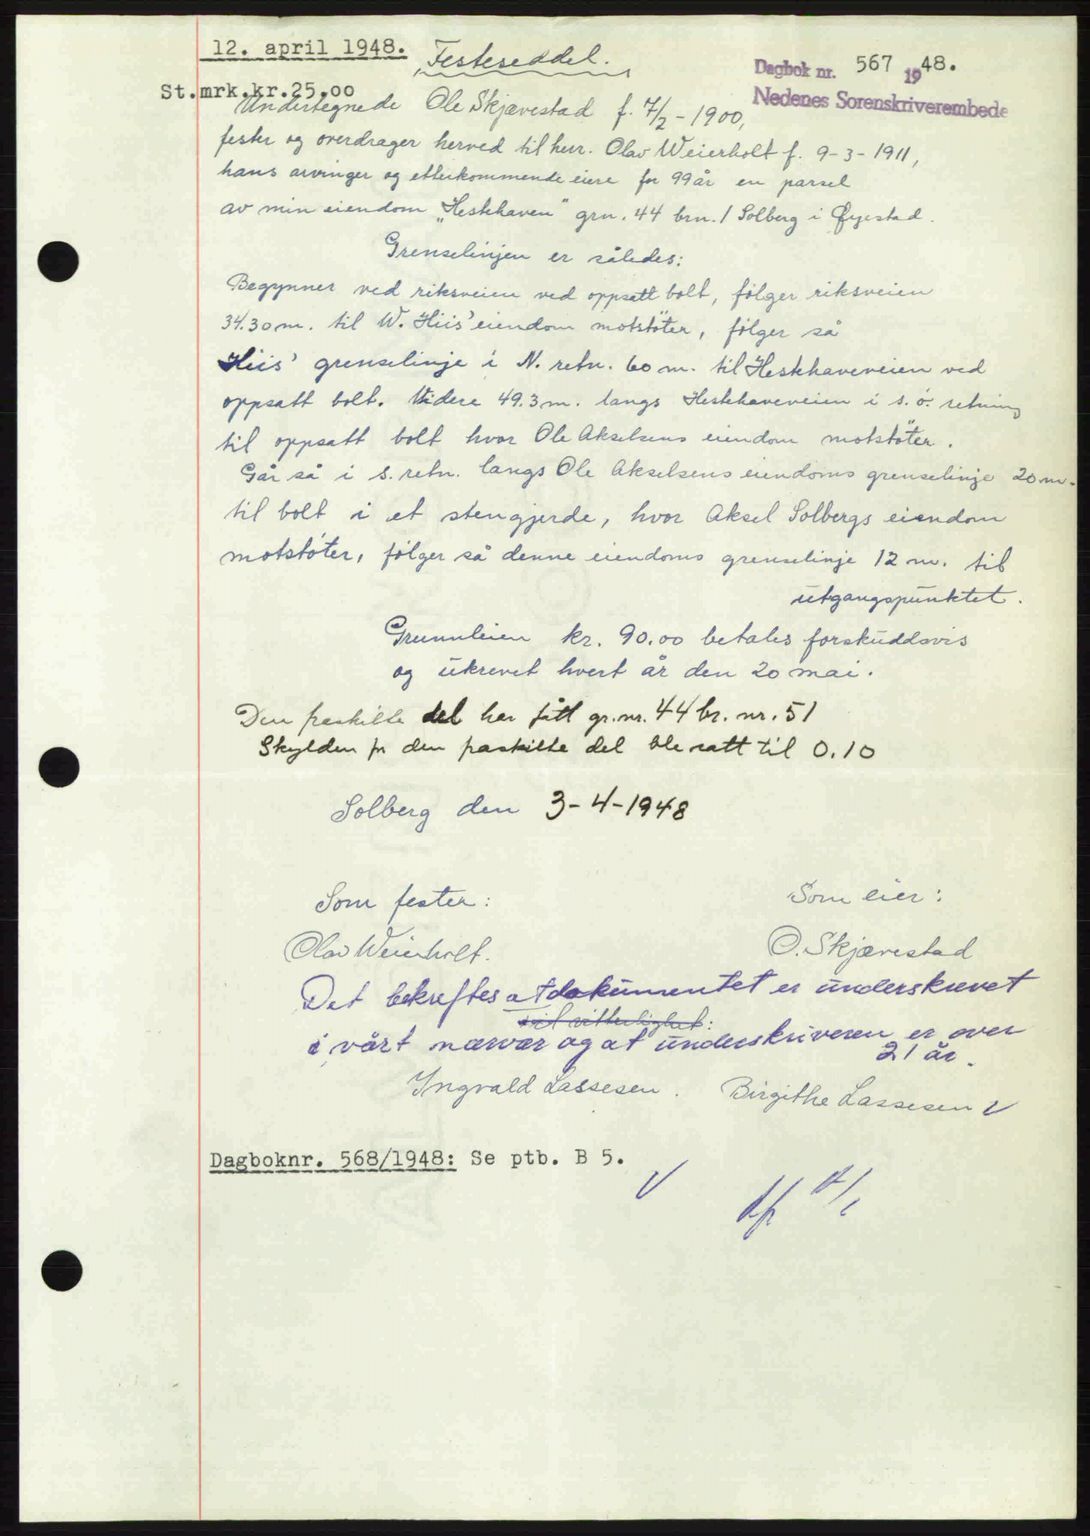 12. april 1948.
Festeseddel.
Dagbok nr. 567 1948.
Nedenes Sorenskriverembede
St.mrk.kr.25.00
Undertegnede Ole Skjævestad f. 7/2 - 1900,
fester og overdrager herved til herr. Olav Weierholt f. 9-3-1911,
hans arvinger og etterkommende eiere for 99 år en parsel
av min eiendom „Hestehaven" grn. 44 brn. 1 Solberg i Øyestad.
Grenselinjen er således:
Begynner ved riksveien ved oppsatt bolt, følger riksveien
34.30 m. til W. Hiis' eiendom motstöter, følger så
Hiis' grenselinje i N. retn. 60 m. til Hestehaveveien ved
oppsatt bolt. Videre 49.3 m. langs Hestehaveveien i s.ö. retning
til oppsatt bolt hvor Ole Akselsens eiendom motstöter.
Går så i s. retn. langs Ole Akselsens eiendoms grenselinje 20 m.
til bolt i et stengjerde, hvor Aksel Solbergs eiendom
motstöter, følger så denne eiendoms grenselinje 12 m. til
utgangspunktet.
Grunnleien kr. 90.00 betales forskuddsvis
og ukrevet hvert år den 20 mai.
Den fraskilte del har fått gr. nr. 44 br. nr. 51
Skylden for den fraskilte del ble satt til 0.10
Solberg den 3-4-1948
Som fester:
Som eier:
Olav Weierholt.
O. Skjævestad
Det bekreftes at dokumentet er underskrevet
til vitterlighet:
i vårt nærvær og at underskriveren er over
21 år.
Ingvald Lassesen. Birgithe Lassesen
Dagboknr. 568/1948: Se ptb. B 5.